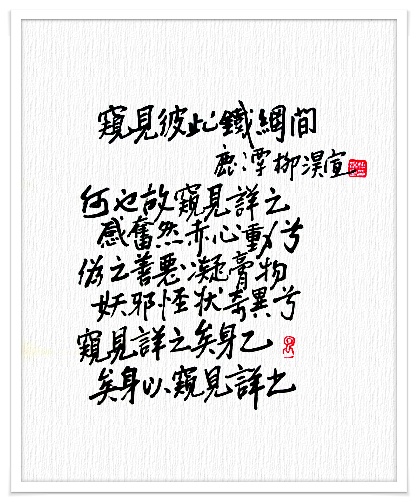 窺見彼此鐵網間
鹿潭柳淏宣
何也故窺見詳之
感奮然赤心動兮
偽之善惡凝膏物
妖邪怪狀奇異兮
窺見詳之矣身乙
矣身以窺見詳之